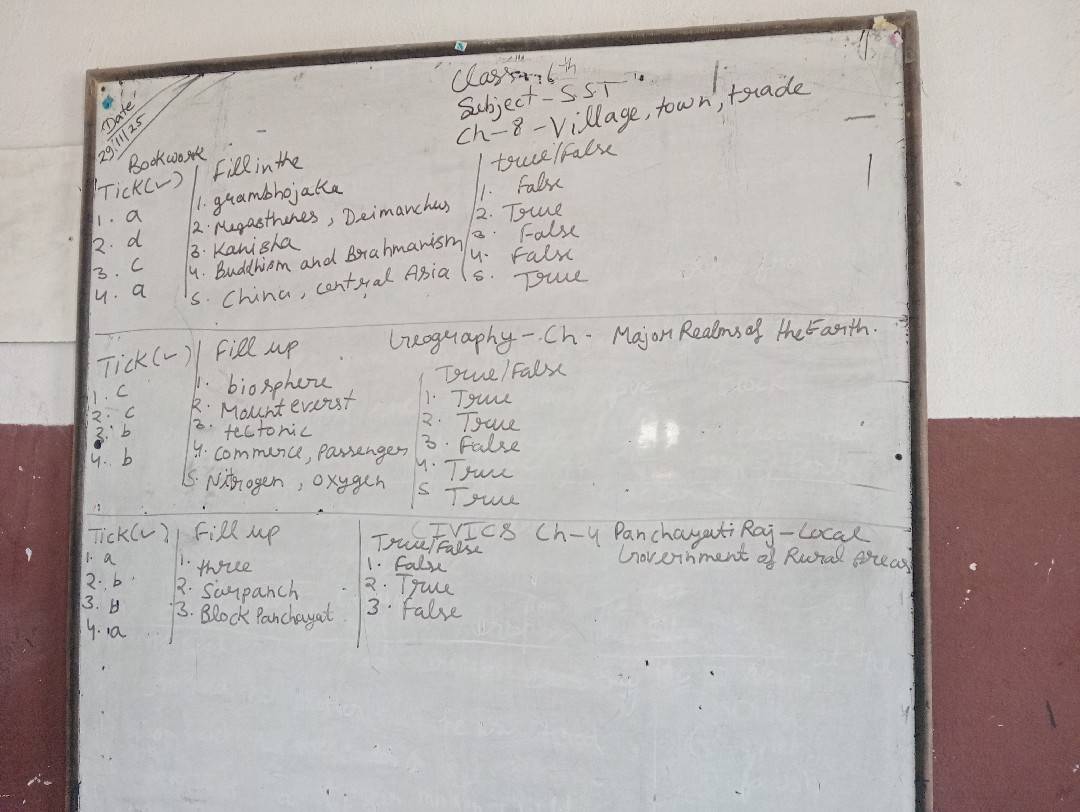 Class - 6th
Subject - S.S.T
Ch-8 - Village, town, trade
Date
29/11/25
Bookwork
Tick(✓)
1. a
2. d
3. c
4. a
Fill in the
1. grambhojaka
2. Megasthenes, Deimanchus
3. Kanisha
4. Buddhism and Brahmanism
5. China, central Asia
true/False
1. False
2. True
3. False
4. False
5. True
Geography - Ch - Major Realms of the Earth.
Tick(✓)
1. c
2. c
3. b
4. b
Fill up
1. biosphere
2. Mount everst
3. tectonic
4. Commerce, Passenger
5. Nitrogen, oxygen
True/False
1. True
2. True
3. False
4. True
5 True
CIVICS Ch-4 Panchayati Raj - Local
Government of Rural Areas
Tick(✓)
1. a
2. b
3. b
4. a
Fill up
1. three
2. Sarpanch
3. Block Panchayat
True/False
1. False
2. True
3. False